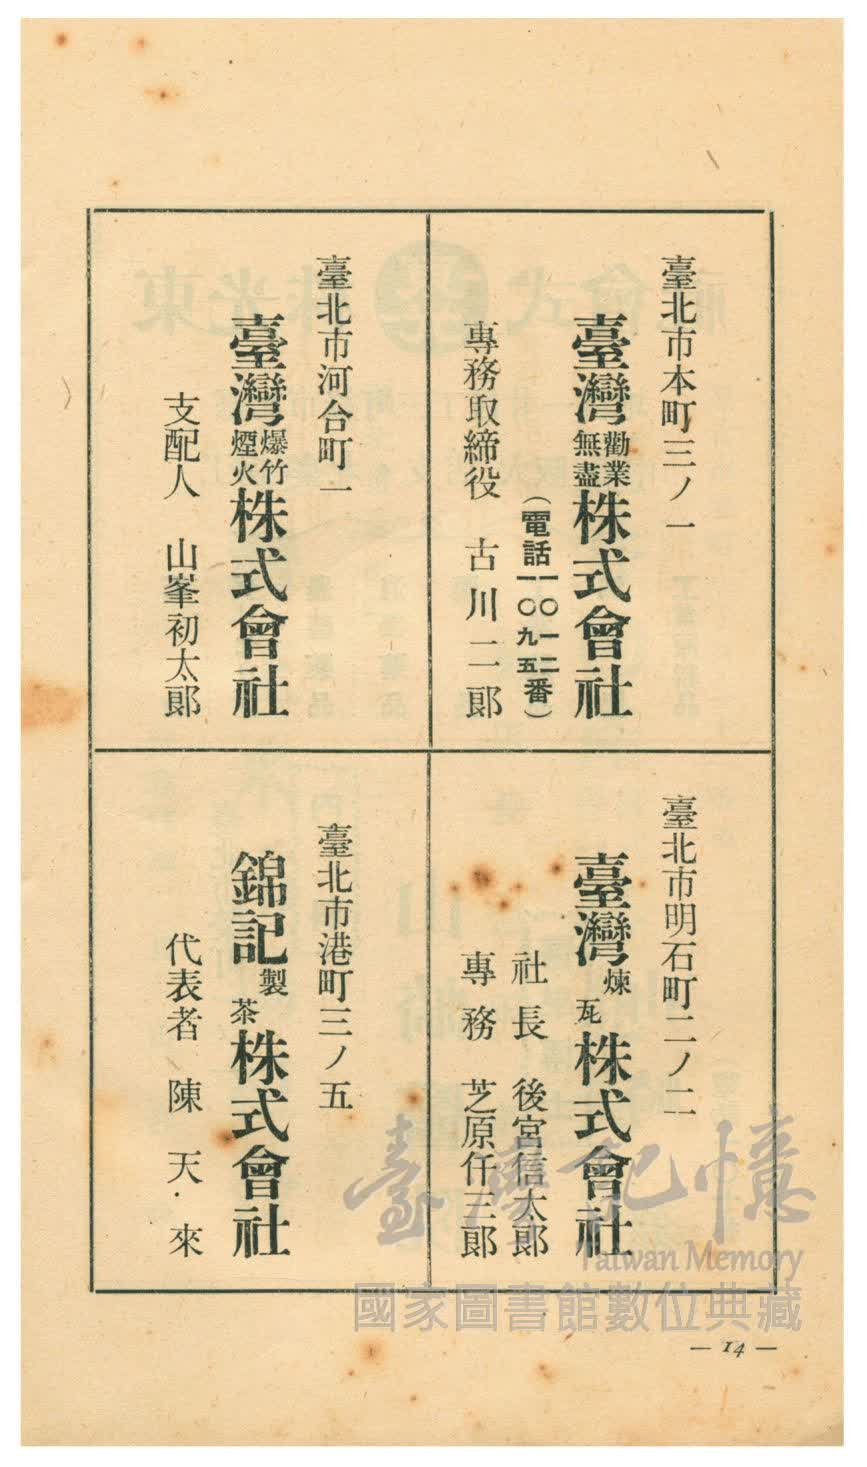 臺北市本町三ノ一
臺灣勸業無盡株式會社
(電話一〇一二一〇九五番)
專務取締役 古川二郞
臺北市河合町一
臺灣爆竹煙火株式會社
支配人 山峯初太郞
臺北市明石町二ノ二
臺灣煉瓦株式會社
社長 後宮信太郞
專務 芝原仟三郞
臺北市港町三ノ五
錦記製茶株式會社
代表者 陳天來
— 14 —
臺灣記憶
Taiwan Memory
國家圖書館數位典藏